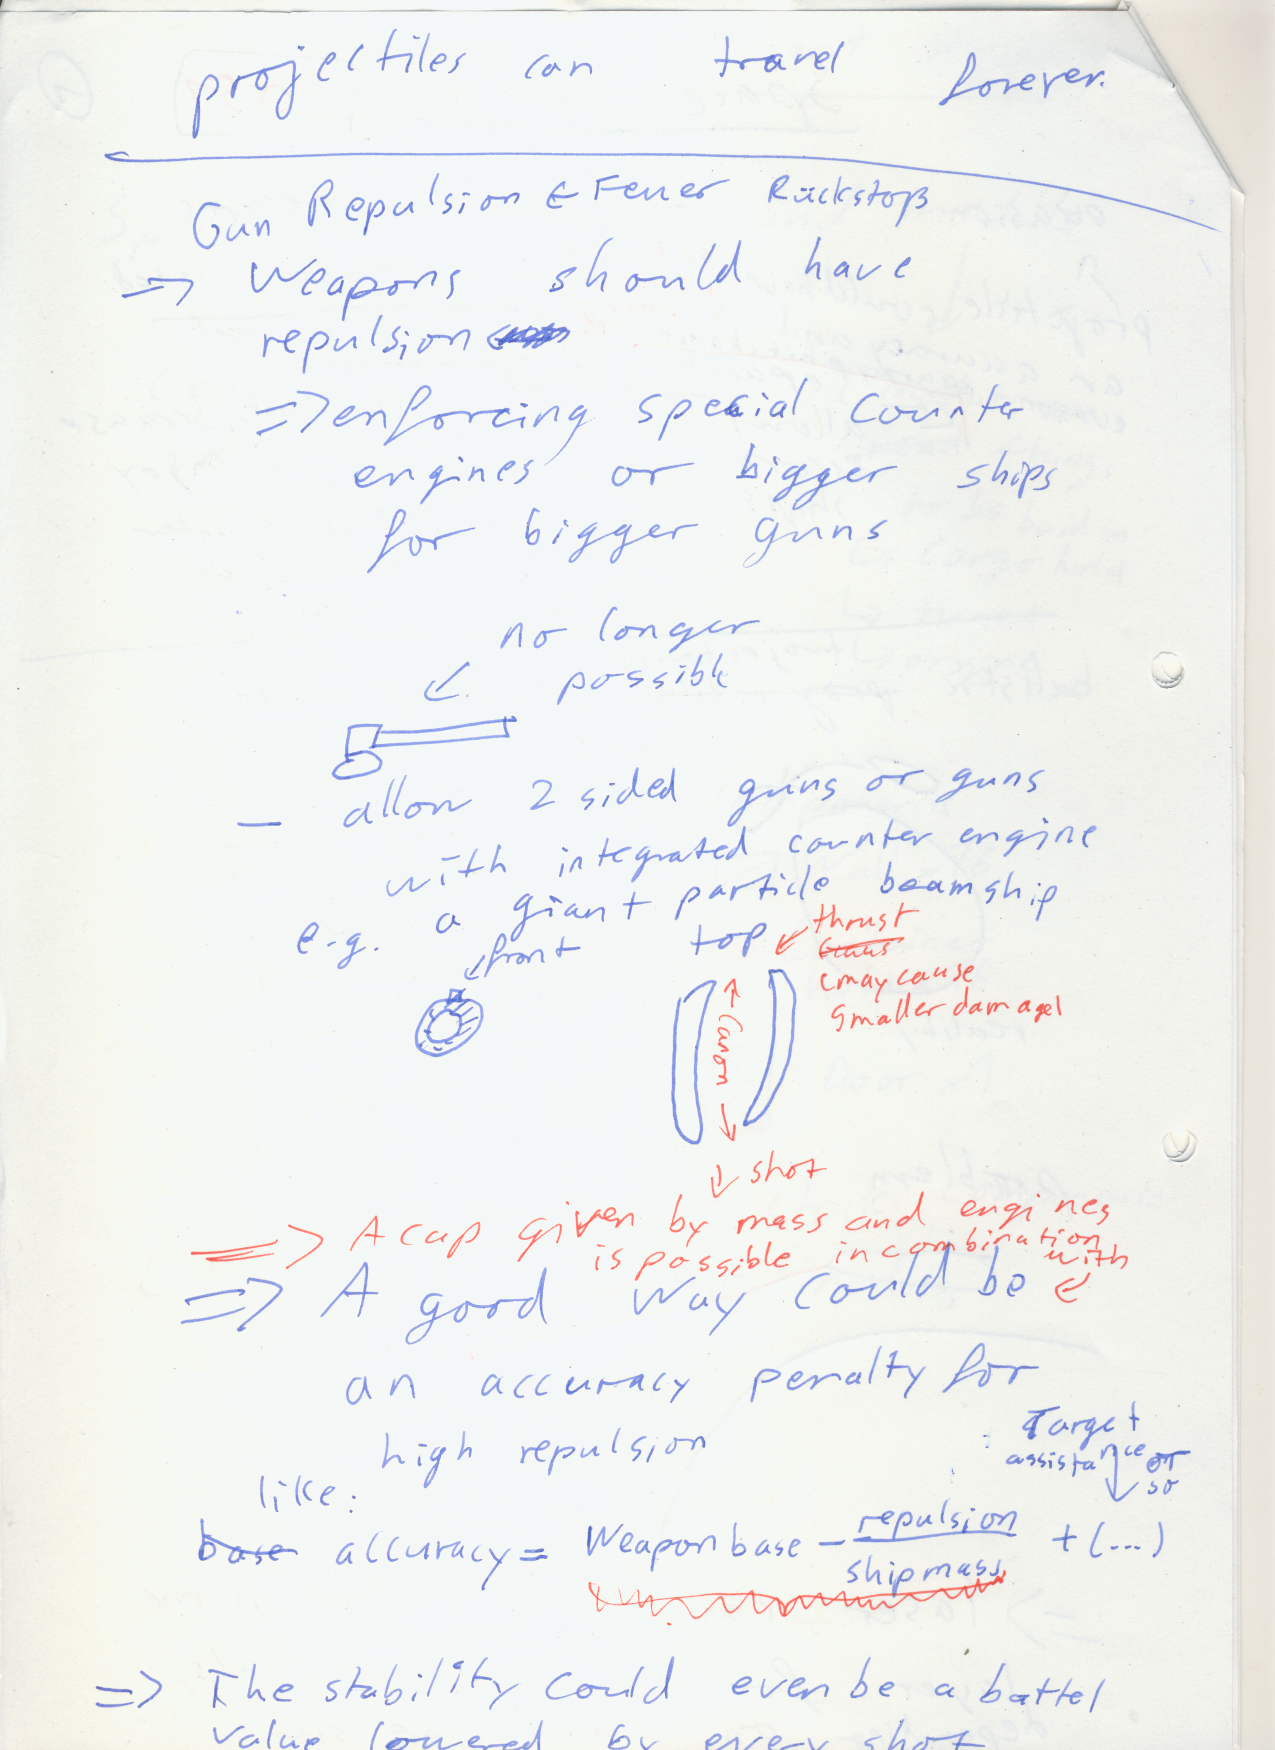 projectiles can travel forever.
Gun Repulsion ← Feuer Rückstoß
⇒ Weapons should have
repulsion
⇒ enforcing special counter
engines or bigger ships
for bigger guns
no longer
possible
- allow 2 sided guns or guns
with integrated counter engine
e.g. a giant particle beamship
front
top
thrust
(may cause
smaller damage)
Canon
shot
⇒ A cap given by mass and engines
is possible in combination
with
⇒ A good way could be
an accuracy penalty for
high repulsion
Target
assistance or
so
like:
base accuracy = Weapon base - repulsion / shipmass + (...)
⇒ The stability could even be a battel
value lowered by every shot